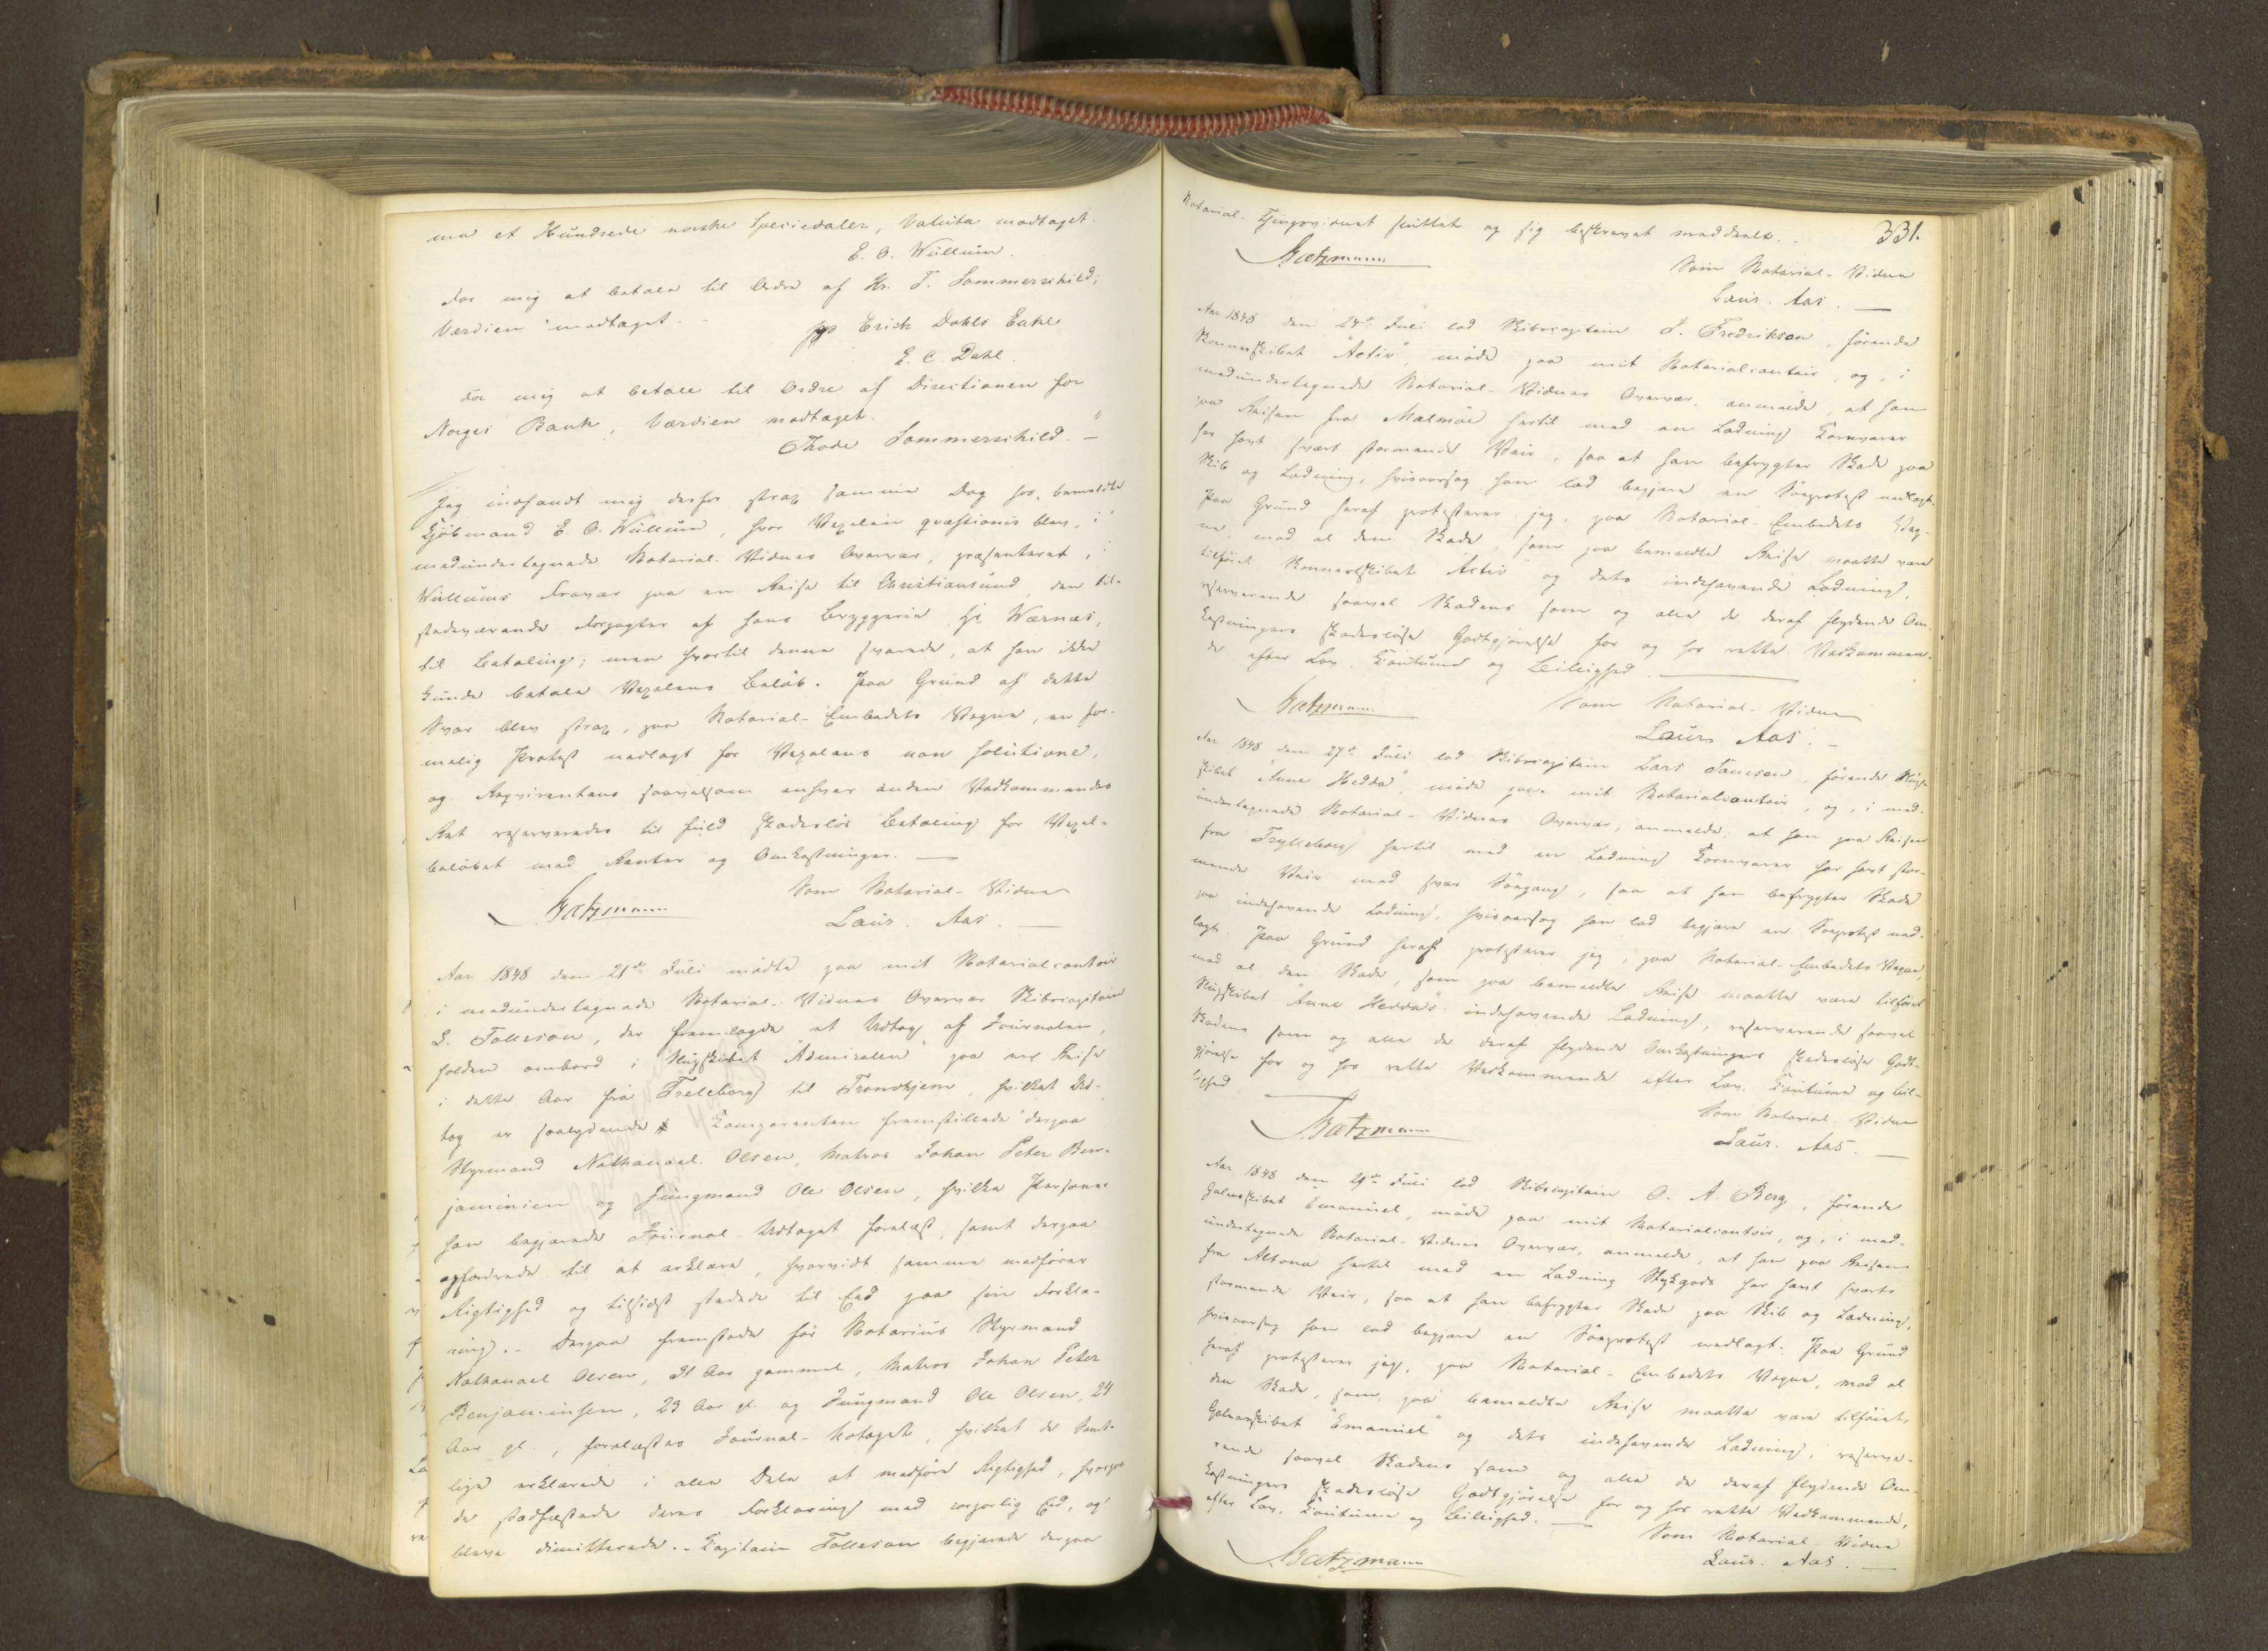 ma et Hundrede norske Speciedaler, Valuta modtaget.
E. O. Wullum.
For mig at betale til Ordre af Hr. T. Sommerschild;
Værdien modtaget. -
pp Erich Dahls Enke
E. C. Dahl.
For mig at betale til Ordre af Directionen for
Norges Bank, Værdien modtaget.
Thode Sommerschild. - "
Jeg indfandt mig derfor strax samme Dag hos bemeldte
Kjøbmand E. O. Wullum, hvor Vexelen qvæstionis blev, i
medundertegnede Notarial-Vidnes Overvær, præsenteret, i
Wullums Fravær paa en Reise til Christiansund, den til-
stedeværende Forpagter af hans Bryggerie Hr Wærnæs,
til Betaling; men hvortil denne svarede, at han ikke
kunde betale Vexelens Beløb. Paa Grund af dette
Svar blev strax, paa Notarial-Embedets Vegne, en for-
melig Protest nedlagt for Vexelens non solutione,
og Reqvirentens saavelsom enhver anden Vedkommendes
Ret reserveredes til fuld skadesløs Betaling for Vexel-
beløbet med Renter og Omkostninger. —
Som Notarial-Vidne
Bætzmann
Laur. Aas. —
Aar 1848 den 21de Juli mødte paa mit Notarialcontoir
i medundertegnede Notarial-Vidnes Overvær Skibscapitain
L. Tollesson, der fremlagde et Udtog af Journalen,
holden ombord i Slupskibet "Admiralen" paa en Reise
i dette Aar fra Treleborg til Tronhjem, hvilket Ud-
tog er saalydende # Comparenten fremstillede derpaa
Styrmand Nathanael Olsen, Matros Johan Peter Ben-
jaminsen og Jungmand Ole Olsen, hvilke Personer
han begjærede Journal-Udtoget forelæst, samt derpaa
opfordrede til at erklære, hvorvidt samme medfører
Rigtighed og tilsidst stedede til Eed paa sin Forkla-
ring. - Derpaa fremstode for Notarius Styrmand
Nathanael Olsen, 31 Aar gammel, Matros Johan Peter
Benjaminsen, 23 Aar gl. og Jungmand Ole Olsen, 24
Aar gl., forelæstes Journal-Udtoget, hvilket de Samt-
lige erklærede i alle Dele at medføre Rigtighed, hvorpaa
de stadfæstede deres Forklaring med corporlig Eed, og
bleve dimitterede. - Capitain Tollesson begjærede derpaa
331.
Notarial-Thingsvidnet sluttet og sig beskrevet meddeelt. -
Som Notarial-Vidne
Bætzmann
Laur. Aas. —
Aar 1848 den 24de Juli lod Skibscapitain J. Fredrikson, førende
Skonnertskibet "Activ", møde paa mit Notarialcontoir, og, i
medundertegnede Notarial-Vidnes Overvær, anmelde, at han
paa Reisen fra Malmøe hertil med en Ladning Kornvarer
har havt svært stormende Veir, saa at han befrygter Skade paa
Skib og Ladning, hvisaarsag han lod begjære en Søeprotest nedlagt.
Paa Grund heraf protesterer jeg, paa Notarial-Embedets Veg-
ne, mod al den Skade, som paa bemeldte Reise maatte være
tilføiet Skonnertskibet "Activ" og dets indehavende Ladning,
reserverende saavel Skadens som og alle de deraf flydende Om-
kostningers skadesløse Godtgjørelse for og hos rette Vedkommen-
de efter Lov, Coutume og Leilighed. —
Som Notarial-Vidne
Bætzmann
Laurs Aas. —
Aar 1848 den 27de Juli lod Skibscapitain Lars Jamson, førende Slup-
skibet "Anne Hedda", møde paa mit Notarialcontoir, og, i med-
undertegnede Notarial-Vidnes Overvær, anmelde, at han paa Reisen
fra Trylleborg hertil med en Ladning Kornvarer har havt stor-
mende Veir med svær Søegang, saa at han befrygter Skade
paa indehavende Ladning, hvisaarsag han lod begjære en Søeprotest ned-
lagt. Paa Grund heraf protesterer jeg, paa Notarial-Embedets Vegne,
mod al den Skade, som paa bemeldte Reise maatte være tilføiet
Slupskibet "Anne Hedda's" indehavende Ladning, reserverende saavel
Skadens som og alle de deraf flydende Omkostningers skadesløse Godt-
gjørelse for og hos rette Vedkommende efter Lov, Coutume og Lei-
lighed —
Som Notarial-Vidne
Bætzmann
Laur. Aas. —
Aar 1848 den 29de Juli lod Skibscapitain O. A. Berg, førende
Galeasskibet Emanuel, møde paa mit Notarialcontoir, og, i med-
undertegnede Notarial-Vidnes Overvær, anmelde, at han paa Reisen
fra Altona hertil med en Ladning Stykgods har havt svært
stormende Veir, saa at han befrygter Skade paa Skib og Ladning,
hvisaarsag han lod begjære en Søeprotest nedlagt. Paa Grund
heraf protesterer jeg, paa Notarial-Embedets Vegne, mod al
den Skade, som paa bemeldte Reise maatte være tilføiet
Galeasskibet "Emanuel" og dets indehavende Ladning, reserve-
rende saavel Skadens som og alle de deraf flydende Om-
kostningers skadesløse Godtgjørelse for og hos rette Vedkommende,
efter Lov, Coutume og Leilighed. —
Som Notarial-Vidne
Bætzmann
Laur. Aas. —